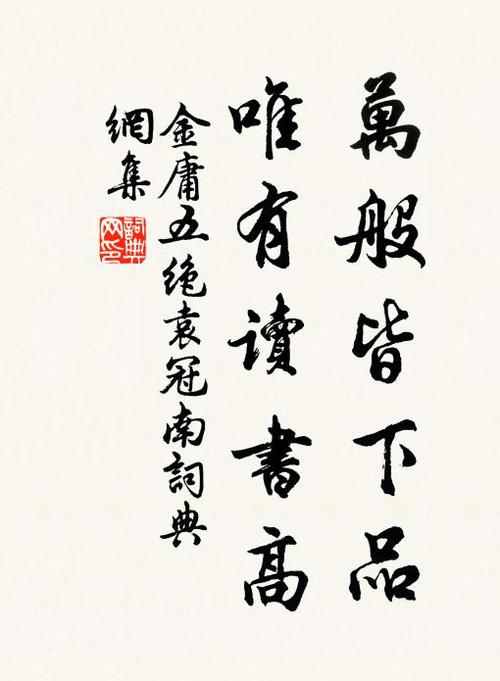 萬般皆下品
唯有讀書高
金庸五绝袁冠南詞典
網集
詞典
网印